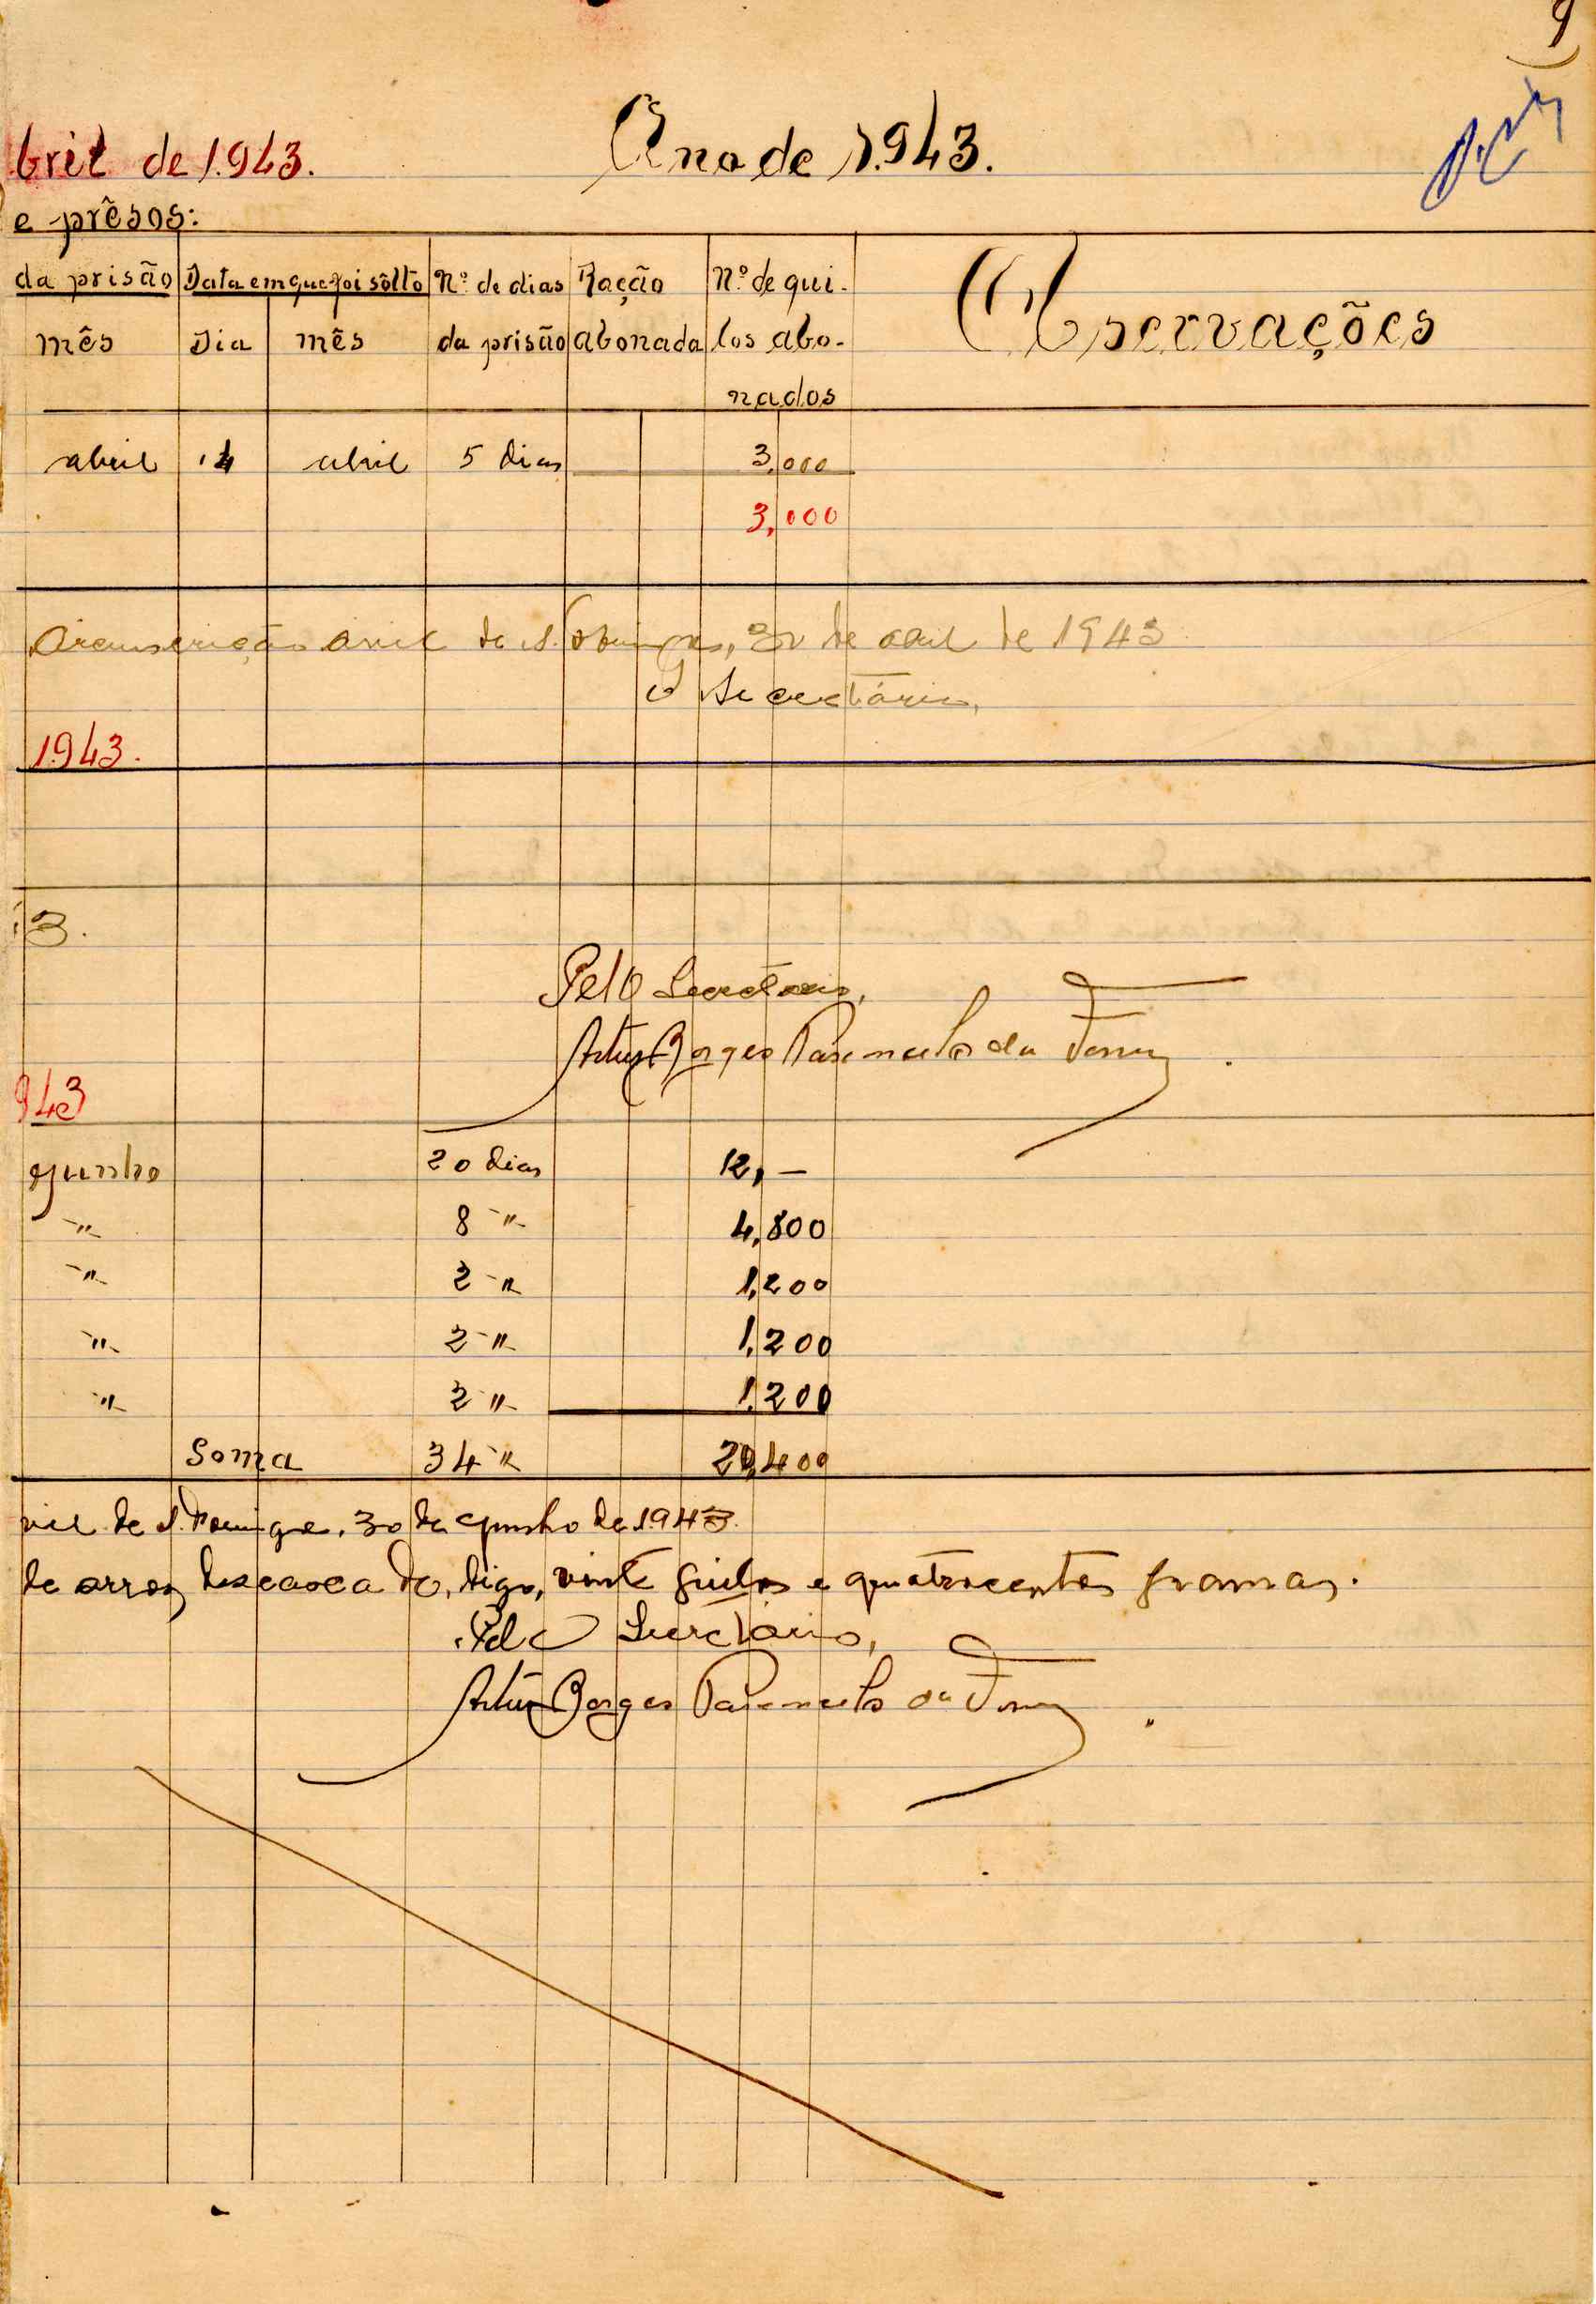 9
bril de 1.943. Ano de 1.943.
e prêsos:
da prisão Data em que foi sôlto Nº de dias Ração Nº de qui-
mês Dia mês da prisão abonada los abo-
nados
Observações
abril 14 abril 5 dias 3,000
3,000
Circunscrição Civil de S. Domingos, 30 de abril de 1943
O Secretário,
1.943.
3.
Pel O Secretário,
Artur Borges da
943
Junho 20 dias 12,—
" 8 " 4,800
" 2 " 1,200
" 2 " 1,200
" 2 " 1,200
Soma 34 " 20,400
vil de S. Domingos, 30 de Junho de 1943.
de arroz descascado, digo, vinte quilos e quatrocentas gramas.
Pel O Secretário,
Artur Borges da